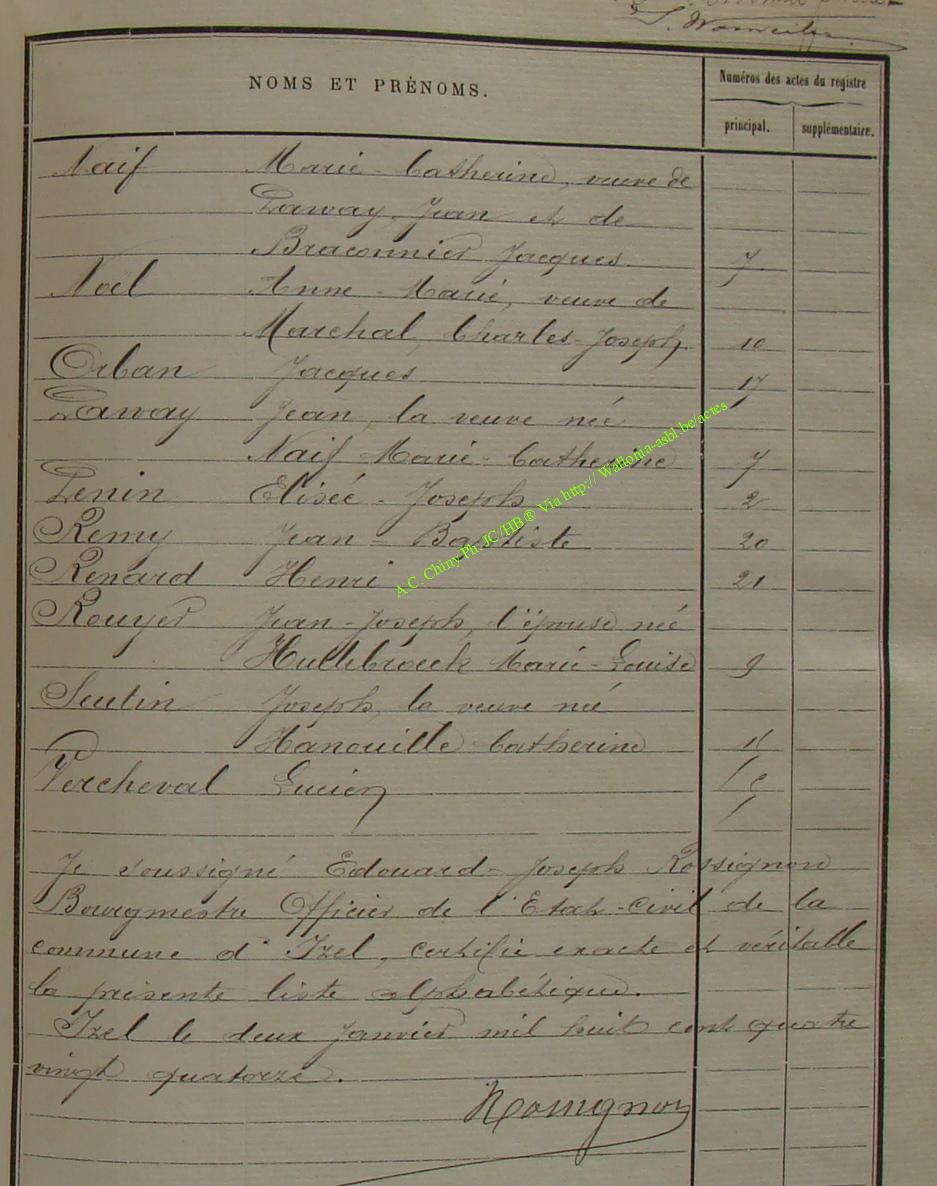 NOMS ET PRÉNOMS.
Numéros des actes du registre
principal. supplémentaire.
Naif Marie-Catherine, veuve de
Laway, Jean et de
Braconnier Jacques. 7.
Noël Anne-Marie, veuve de
Marchal, Charles-Joseph. 10
Orban Jacques 17
Laway Jean, la veuve née
Naif Marie-Catherine 7
Lenin Elisée-Joseph 2
Remy Jean-Baptiste 20
Renard Henri 21
Rouyer Jean-Joseph, l'épouse née
Marie-Louise 9
Scutin Joseph, la veuve née
Hanouille Catherine
Vercheval Lucien
Je soussigné Edouard-Joseph Rossignon
Bourgmestre Officier de l'Etat-Civil de la
commune d'Izel, certifie exacte et véritable
la présente liste alphabétique.
Izel le deux Janvier mil huit cent quatre
vingt quatorze.
Rossignon
A.C. Chiny Ph JC/HB® Via http://Wallonia-asbl.be/actes